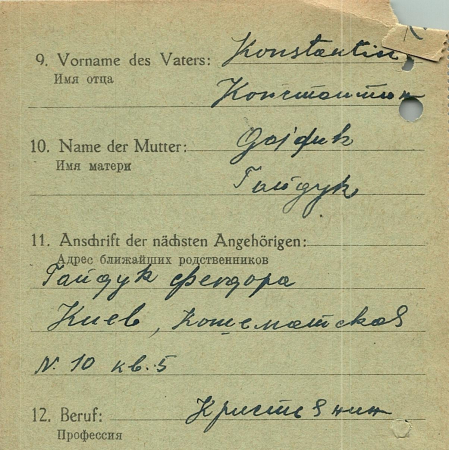 9. Vorname des Vaters: Konstantin
Имя отца
Константин
10. Name der Mutter:
Имя матери
Гайдук
11. Anschrift der nächsten Angehörigen:
Адрес ближайших родственников
Гайдук Феодора
Киев,
№ 10 кв. 5
12. Beruf: Кристянин
Профессия